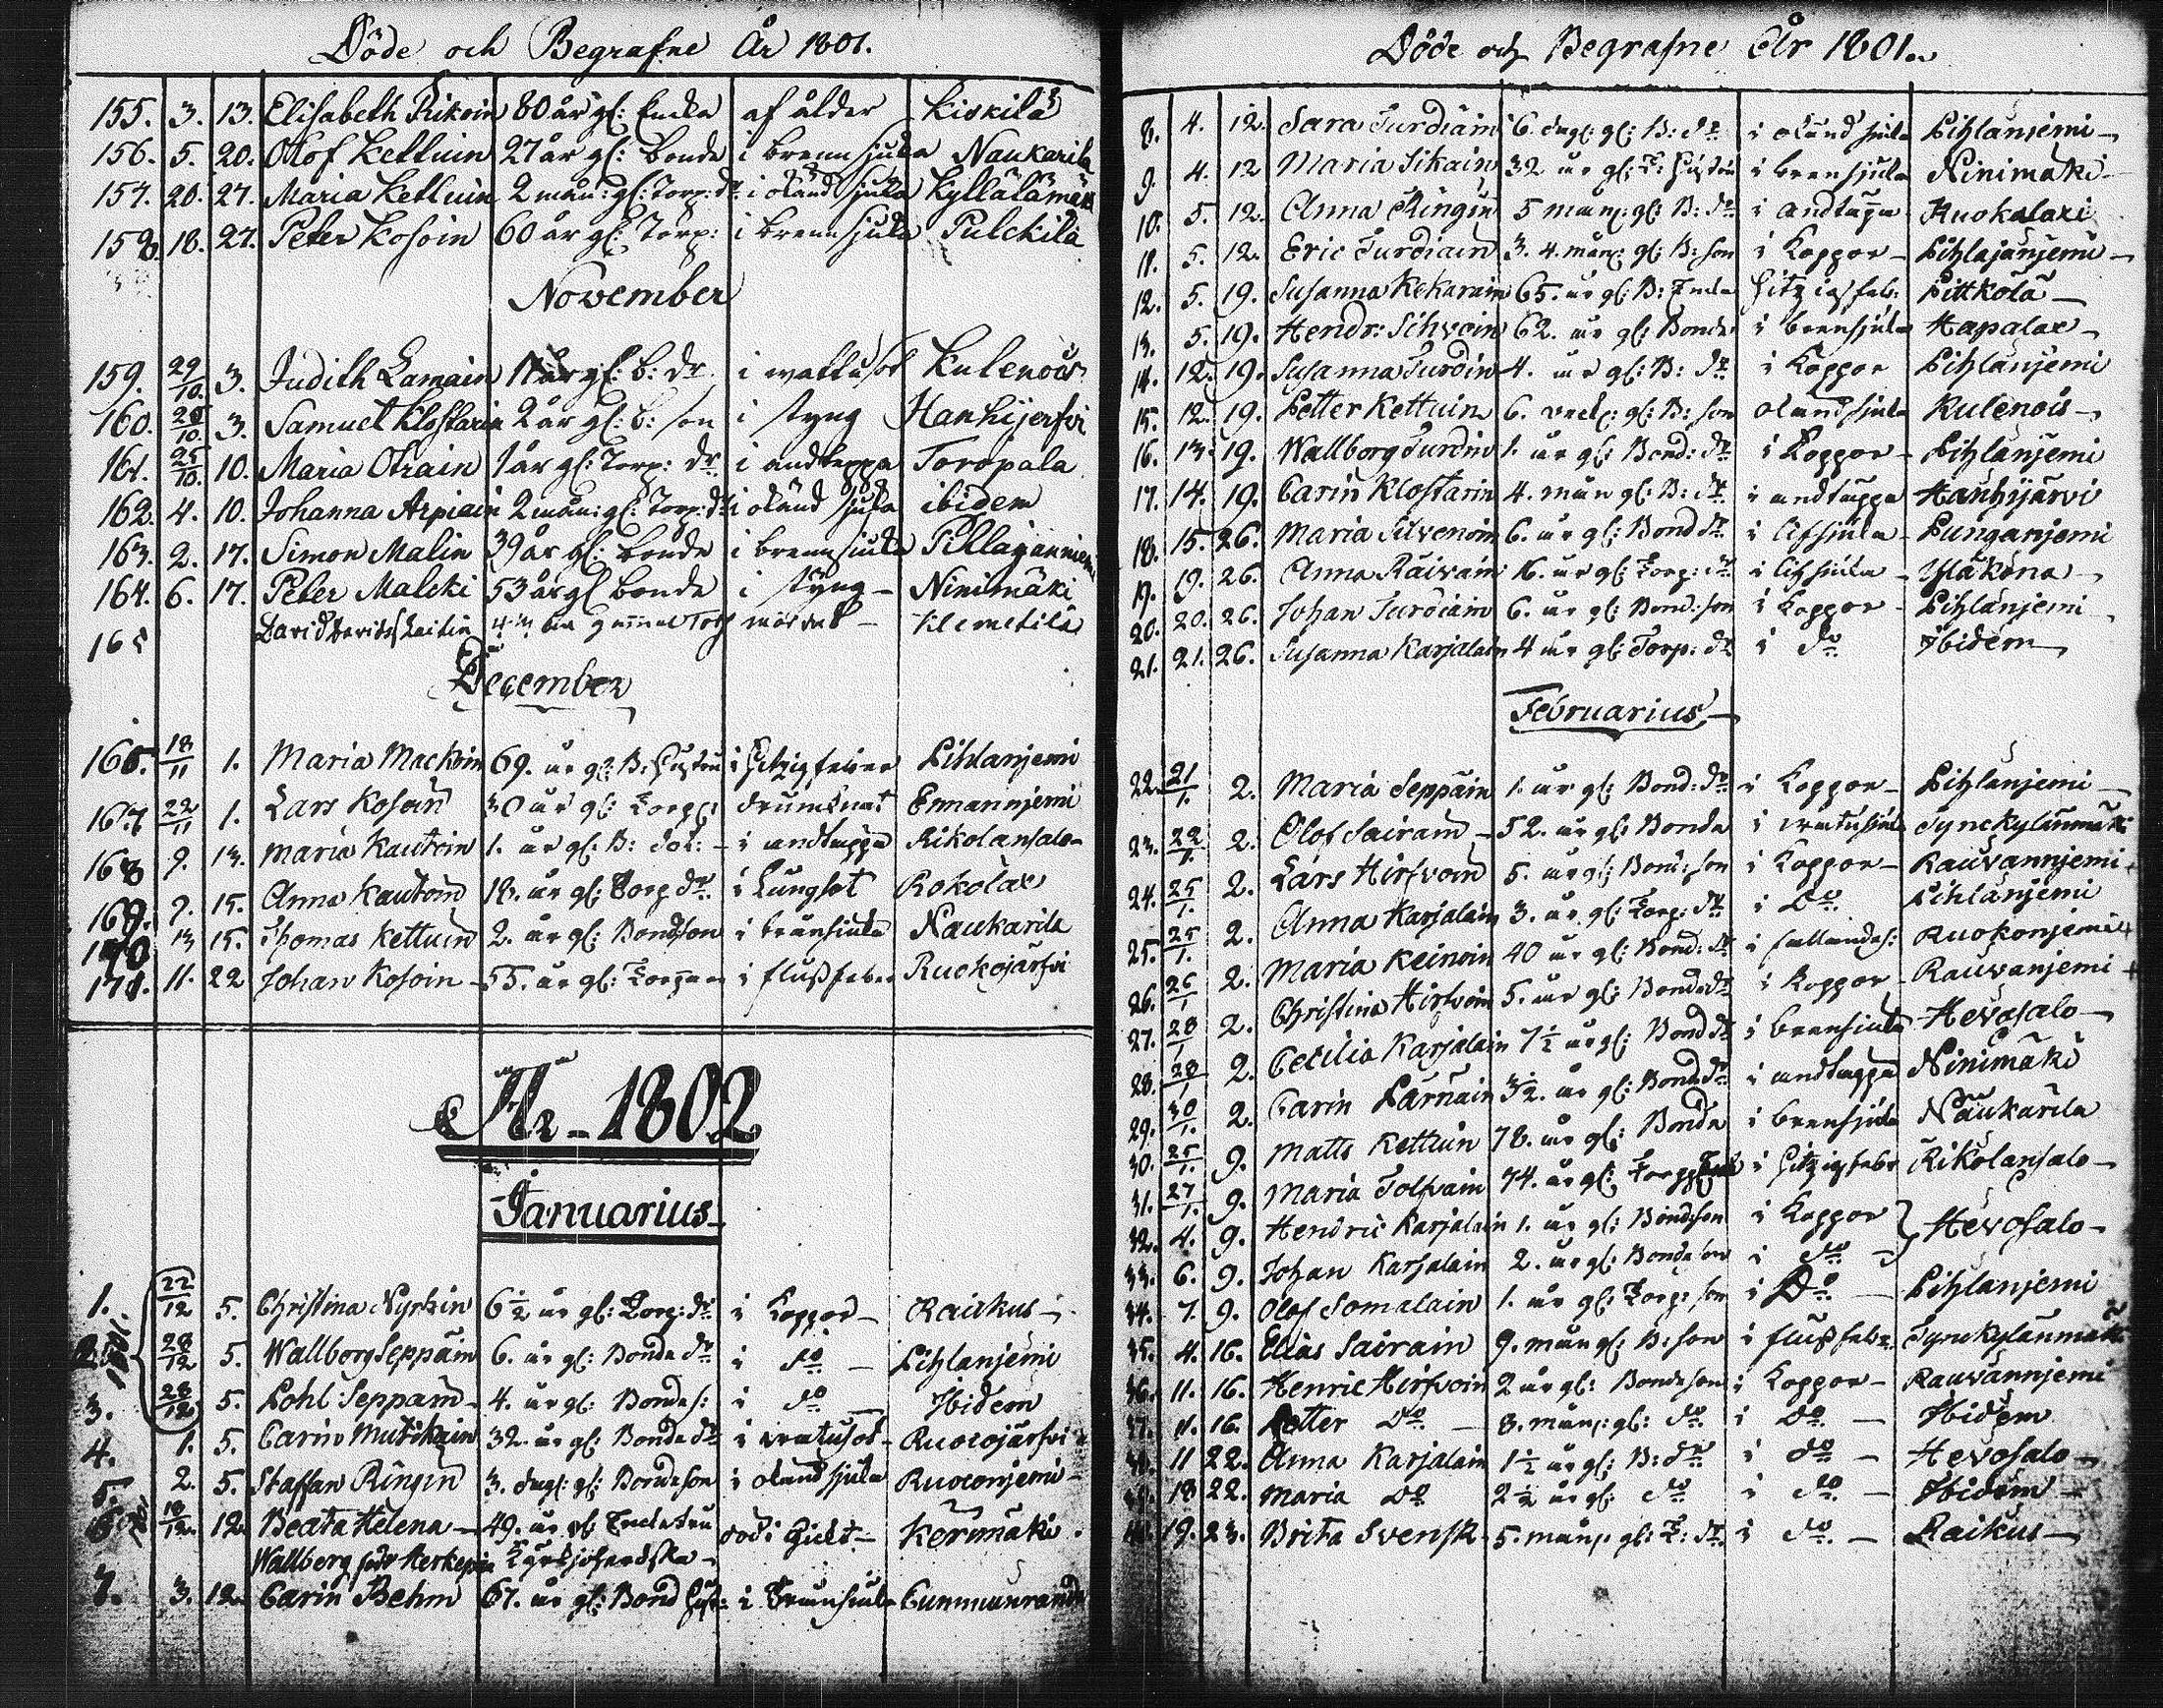 Döde och Begrafne År 1801.
155. 3. 13. Elisabeth Pikoin 80 år gl: Enka af ålder Kiskilä
156. 5. 20. Olof Kettuin 27 år gl: bonde i brennsjuka Naukarila
157. 20. 27. Maria Kettuin 2 mån: gl: Torp: dr i okänd sjuka Kyllälämäki
158. 18. 27. Peter Kosoin 60 år gl: Torp: i brennsjuka Pulckila
November
159. 29/10. 3. Judith Lamain år gl: b: dr i wattusot Kulenois
160. 28/10. 3. Samuel Klostarin 2 år gl: b: son i styng Hanhijerfvi
161. 25/10. 10. Maria Otrain 1 år gl: Torp: dr i andteppa Toropala
162. 4. 10. Johanna Arpiain 2 mån: gl: Torp: dr i okänd sjuka ibidem
163. 2. 17. Simon Malin 39 år gl: bonde i brennsjuka Pihlajanniemi
164. 6. 17. Peter Malcki 53 år gl bonde i styng – Ninimäki
165 David Davids: Laitin mördad – Klemetilä
December
166. 18/11 1. Maria Mackoin 69. år gl: B: Hustru i Hitzigfeber Pihlanjemi
167 22/11 1. Lars Kosoin 30 år gl: Torp: drunknat Enmannjemi
168 9. 13. Maria Kautoin 1. år gl: B: dot: – i andtäppa Rikolansalo–
169. 9. 15. Anna Kautoin 18. år gl: Torp dr. i Lungsot Rokolax
170 13 15. Thomas Kettuin 2. år gl: Bondson i bränsiuka Naukarila
171. 11. 22 Johan Kosoin – 55. år gl: Torpare i flussfeber Ruokojärfvi
År – 1802
Januarius –
1. 22/12 5. Christina Nyrhin 6½ år gl: Torp: dr i Koppor – Raikus –
2. 28/12 5. Wallborg Seppäin 6. år gl: Bonde dr i do – Pihlanjemi
3. 28/12 5. Pohl: Seppäin – 4. år gl: Bonde s: i do Ibidem
4. 1. 5. Carin Mutikain 32. år gl: Bonde dr i watusot – Ruokojärfvi
5. 2. 5. Staffan Ringin 3. dag: gl: Bondeson i okänd sjuka Ruokonjemi –
6. 18/12. 12. Beata Helena – 49. år gl Enkefru död i Gickt – Kerimäki
Wallberg född Herkepæa Kyrkjoherdska –
7. 3. 12. Carin Behm 67. år gl: Bond Hust: i Brännsiuka Cummunranda
Döde och Begrafne År 1801.
8. 4. 12. Sara Turdiain 6. dag: gl: B: dr i okänd siuka Pihlanjemi –
9. 4. 12 Maria Sikain 32 år gl: T: Hustru i brensjuka Ninimäki –
10. 5. 12. Anna Ringin 5 mån: gl: B: dr i andtäppa Ruokolaxi
11. 5. 12. Eric Turdiain 3. 4. mån: gl: B: son i Koppor – Pihlajanjemi –
12. 5. 19. Susanna Kekarain 65. år gl: B: Enka Hitzigfeb: Pittkolä –
13. 5. 19. Hendr: Sihvoin 62. år gl: Bonde i brensjuka Hapalax –
14. 12. 19. Susanna Turdin 4. år gl: B: dr i Koppor Pihlanjemi
15. 12. 19. Petter Kettuin 6. veck: gl: B: son okändsjuka Kulenois –
16. 13. 19. Wallborg Turdin 1. år gl: Bond: dr i Koppor – Pihlanjemi
17. 14. 19. Carin Klostarin 4. mån gl: B: dr i andtäppa Hanhijärvi
18. 15. 26. Maria Silvenoin 6. år gl: Bond dr i Lifsjuka – Punganjemi
19. 19. 26. Anna Räivain 16. år gl: Torp: dr i lifsiuka – Yläkona –
20. 20. 26. Johan Turdiain 6. år gl: Bond: son i Koppor – Pihlanjemi
21. 21. 26. Susanna Karjalain 4 år gl: Torp: dr i do Ibidem –
Februarius –
22. 21/1. 2. Maria Seppäin 1. år gl: Bond: dr i Koppor – Pihlanjemi –
23. 22/1. 2. Olof Sairain – 52. år gl: Bonde i watusiuka Tynckylänmäki
24. 25/1. 2. Lars Hirfvoin 5. år gl: Bond: son i Koppor – Rauvannjemi +
25. 25/1. 2. Anna Karjalain 3. år gl: Torp: dr i Do Pihlanjemi
26. 26/1 2. Maria Keinoin 40 år gl: Bond: dr i fallandes: Ruokonjemi +
27. 28/1 2. Christina Hirfvoin 5. år gl: Bonde dr i Koppor – Rauvanjemi +
28. 28/1 2. Cecilia Karjalain 7½ år gl: Bond dr i brensiuka Hevosalo –
29. 30/1. 2. Carin Pärnäin 3½. år gl: Bonde dr i andtäppa Ninimäki
30. 25/1. 9. Matts Kettuin 78. år gl: Bonde i brensjuka Naukarila
31. 27/1. 9. Maria Tolfvain 74. år gl: Torp i Hitzigfeber Rikolansalo –
32. 4. 9. Hendric Karjalain 1. år gl: Bondeson i Koppor } Hevosalo –
33. 6. 9. Johan Karjalain 2. år gl: Bondeson i do –
34. 7. 9. Olof Somalain 1. år gl: Torp: son i Do – Pihlanjemi
35. 4. 16. Elias Sairain 9. mån gl: B: son i flussfeber Tynckylänmäki
36. 11. 16. Henric Hirfvoin 2 år gl: Bondeson i Koppor – Rauvannjemi
37. 11. 16. Petter Do – 8. mån: gl: do i Do – Ibidem
38. 11 22. Anna Karjalain 1½ år gl: B: dr i do – Hevosalo –
39. 18 22. Maria Do 2½ år gl: do i do – Ibidem –
40. 19. 23. Brita Svensk 5. mån: gl: T: dr. i do – Raikus –